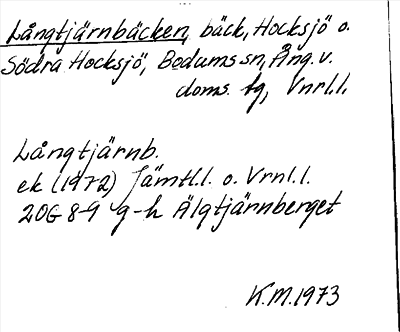 Långtjärnbäcken, bäck, Hocksjö o.
Södra Hocksjö, Bodums sn, Ång. v.
doms. tg, Vnrl.l.
Långtjärnb.
ek (1972) Jämtl.l. o. Vrnl.l.
20G 8-9 g-h Älgtjärnberget
K.M. 1973